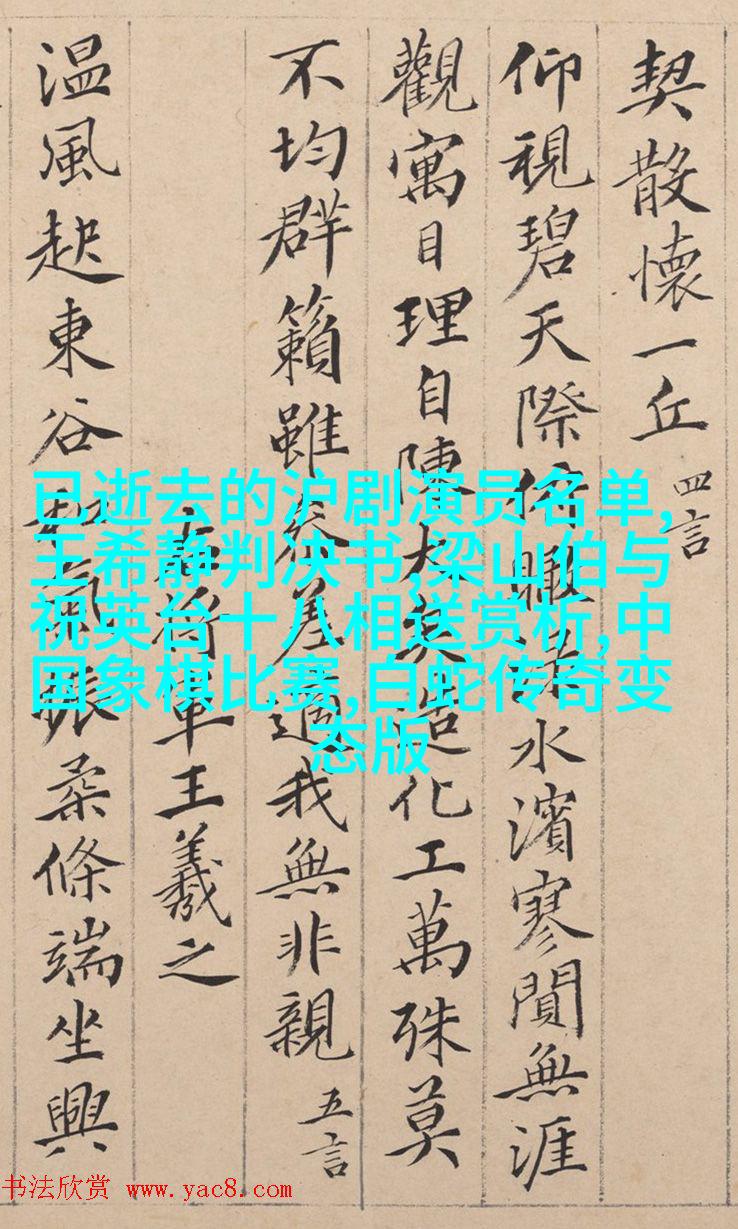 契散懷一丘 四言
仰視碧天際俯瞰淥水濱寥閴無涯
觀寓目理自陳大矣造化工萬殊莫
不均群籟雖參差適我無非親 五言
右將軍王羲之
温風起東谷和氣振柔條端坐興
已逝去的沪剧演员名单,
王希静判决书,梁山伯与
祝英台十八相送赏析,中
国象棋比赛,白蛇传奇变
态版
书法欣赏 www.yac8.com